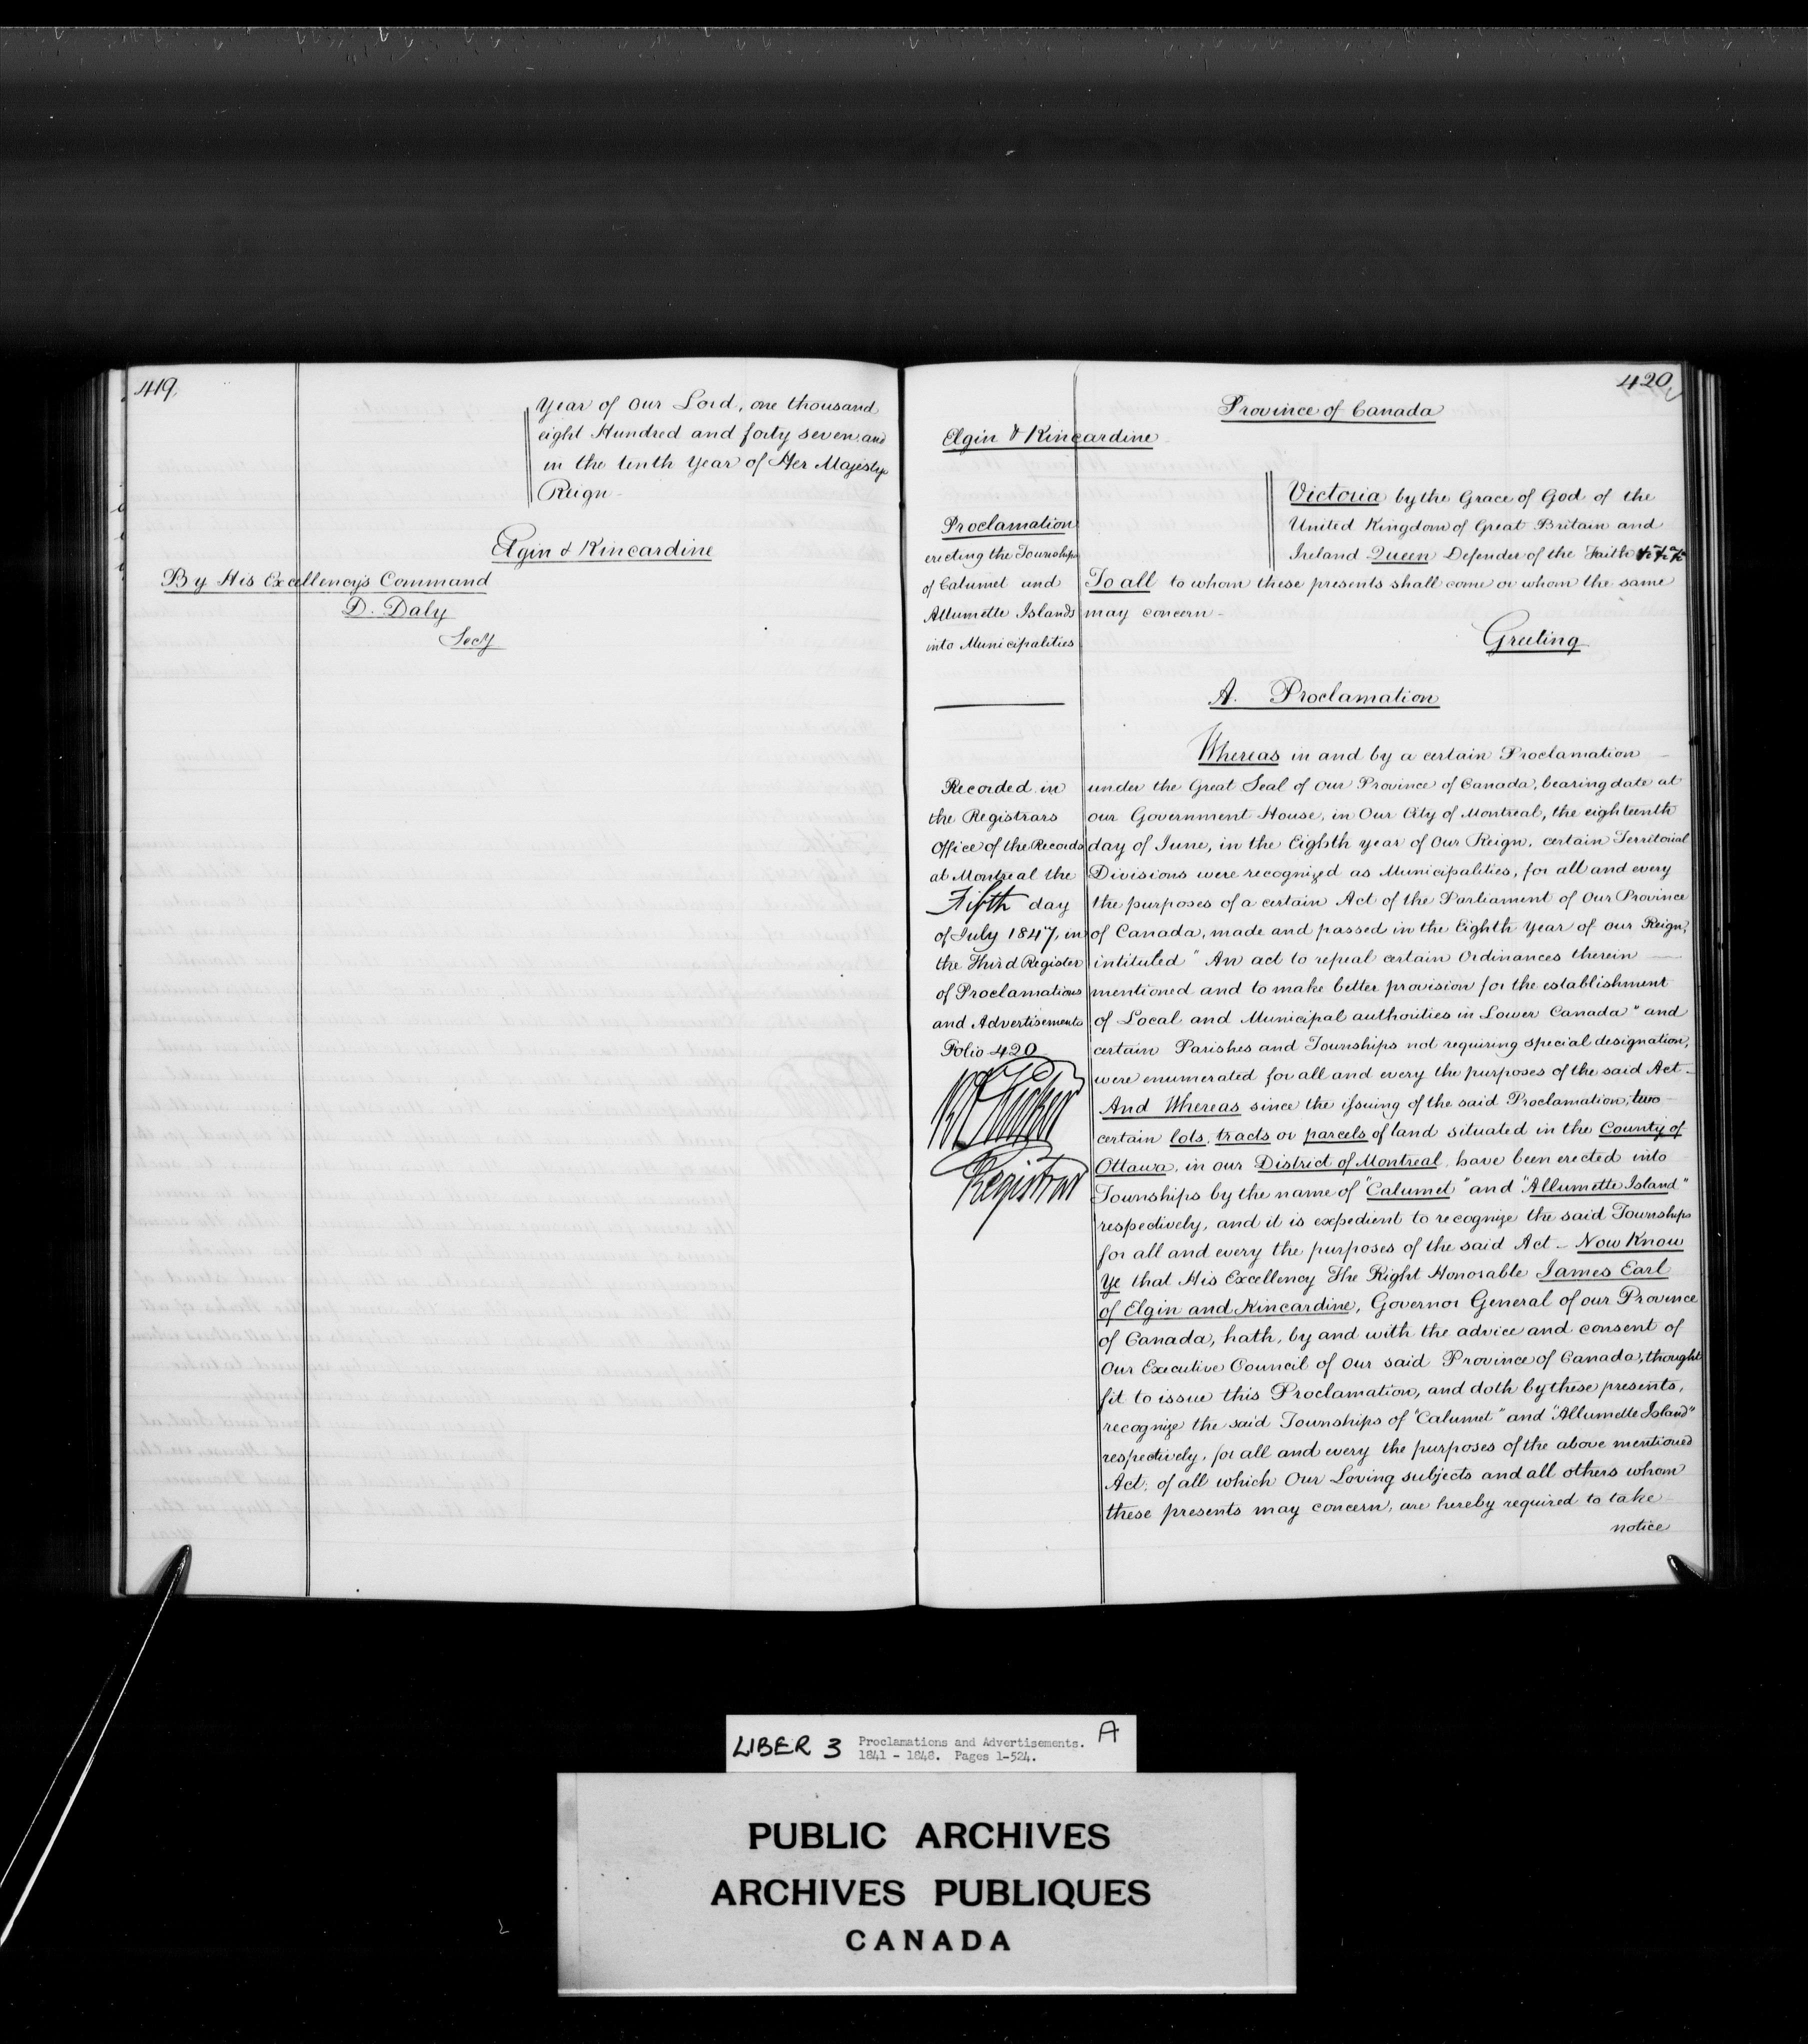 419.
Year of Our Lord, one thousand
eight Hundred and forty seven and
in the tenth Year of Her Majestys
Reign -
Elgin & Kincardine
By His Excellency's Command
D. Daly
Secy
420
Province of Canada
Elgin & Kincardine
Proclamation
erecting the Townships
of Calumet and
Allumette Islands
into Municipalities
Recorded in
the Registrars
Office of the Records
at Montreal the
Fifth day
of July 1847, in
the Third Register
of Proclamations
and Advertisements
Folio 420
Registrar
Victoria by the Grace of God of the
United Kingdom of Great Britain and
Ireland Queen Defender of the Faith &c &c &c
To all to whom these presents shall come or whom the same
may concern -
Greeting
A. Proclamation
Whereas in and by a certain Proclamation
under the Great Seal of Our Province of Canada, bearing date at
our Government House, in Our City of Montreal, the eighteenth
day of June, in the Eighth year of Our Reign, certain Territorial
Divisions were recognized as Municipalities, for all and every
the purposes of a certain Act of the Parliament of Our Province
of Canada, made and passed in the Eighth Year of our Reign,
intituled "An act to repeal certain Ordinances therein
mentioned and to make better provision for the establishment
of Local and Municipal authorities in Lower Canada" and
certain Parishes and Townships not requiring special designation,
were enumerated for all and every the purposes of the said Act -
And Whereas since the issuing of the said Proclamation, two
certain lots, tracts or parcels of land situated in the County of
Ottawa, in our District of Montreal, have been erected into
Townships by the name of "Calumet" and "Allumette Island"
respectively, and it is expedient to recognize the said Townships
for all and every the purposes of the said Act - Now Know
Ye that His Excellency The Right Honorable James Earl
of Elgin and Kincardine, Governor General of our Province
of Canada, hath, by and with the advice and consent of
Our Executive Council of Our said Province of Canada, thought
fit to issue this Proclamation, and doth by these presents,
recognize the said Townships of "Calumet" and "Allumette Island"
respectively, for all and every the purposes of the above mentioned
Act; of all which Our Loving subjects and all others whom
these presents may concern, are hereby required to take
notice
LIBER 3 Proclamations and Advertisements. A
1841 - 1848. Pages 1-524.
PUBLIC ARCHIVES
ARCHIVES PUBLIQUES
CANADA